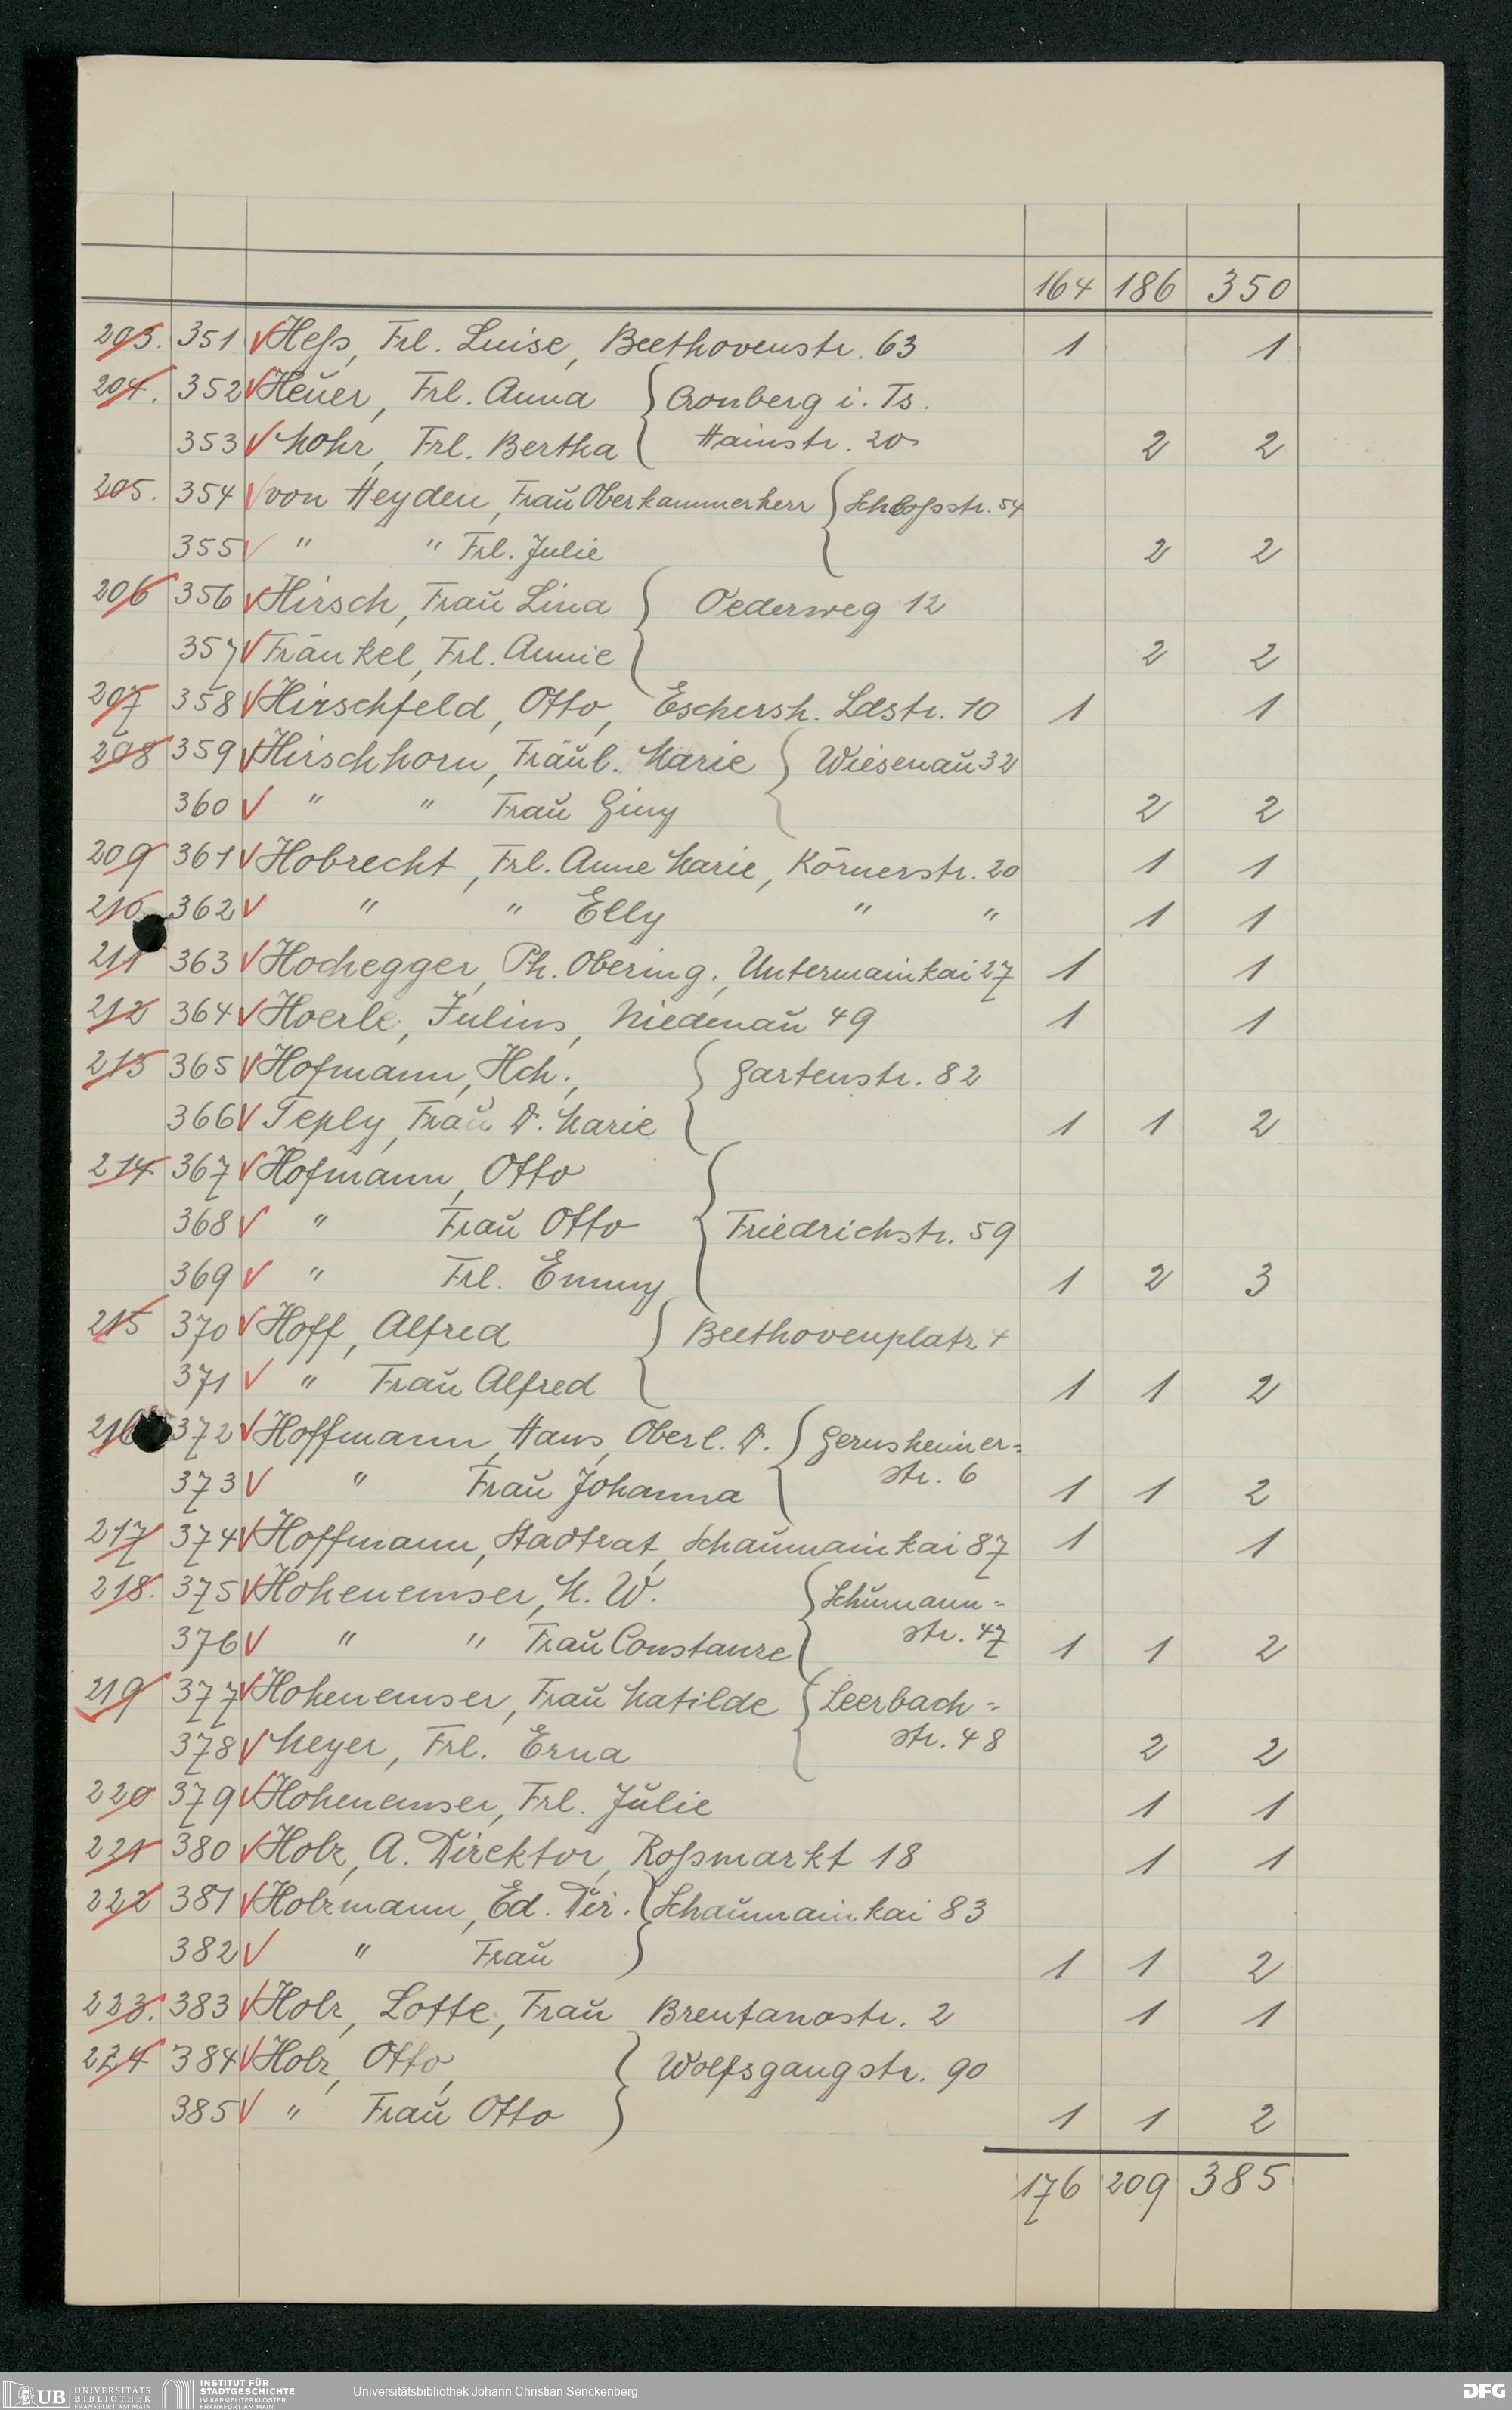 164 186 350
203. 351 Heß, Frl. Luise, Beethovenstr. 63 1 1
204. 352 Heuer, Frl. Anna Cronberg i. Ts.
353 Mohr, Frl. Bertha Hainstr. 20 2 2
205. 354 von Heyden, Frau Oberkammerherr Schloßstr. 54
355 " " Frl. Julie 2 2
206 356 Hirsch, Frau Lina Oederweg 12
357 Fränkel, Frl. Annie 2 2
207 358 Hirschfeld, Otto, Eschersh. Ldstr. 10 1 1
208 359 Hirschhorn, Fräul. Marie Wiesenau 32
360 " " Frau Giny 2 2
209 361 Hobrecht, Frl. Anne Marie, Körnerstr. 20 1 1
210 362 " " Elly " " 1 1
211 363 Hochegger, Ph. Obering., Untermainkai 27 1 1
212 364 Hoerle, Julius, Niedenau 49 1 1
213 365 Hofmann, Hch., Gartenstr. 82
366 Teply, Frau D. Marie 1 1 2
214 367 Hofmann, Otto
368 " Frau Otto Friedrichstr. 59
369 " Frl. Emmy 1 2 3
215 370 Hoff, Alfred Beethovenplatz 4
371 " Frau Alfred 1 1 2
216 372 Hoffmann, Hans, Oberl. D. Gernsheimer=
str. 6
373 " Frau Johanna 1 1 2
217 374 Hoffmann, Stadtrat, Schaumainkai 87 1 1
218. 375 Hohenemser, M. W. Schumann=
str. 47
376 " " Frau Constanze 1 1 2
219 377 Hohenemser, Frau Matilde Leerbach=
str. 48
378 Meyer, Frl. Erna 2 2
220 379 Hohenemser, Frl. Julie 1 1
221 380 Holz, A. Direktor, Roßmarkt 18 1 1
222 381 Holzmann, Ed. Dir. Schaumainkai 83
382 " Frau 1 1 2
223. 383 Holz, Lotte, Frau Brentanostr. 2 1 1
224 384 Holz, Otto, Wolfsgangstr. 90
385 " Frau Otto 1 1 2
176 209 385
UB UNIVERSITÄTS
BIBLIOTHEK
FRANKFURT AM MAIN
INSTITUT FÜR
STADTGESCHICHTE
IM KARMELITERKLOSTER
FRANKFURT AM MAIN
Universitätsbibliothek Johann Christian Senckenberg
DFG